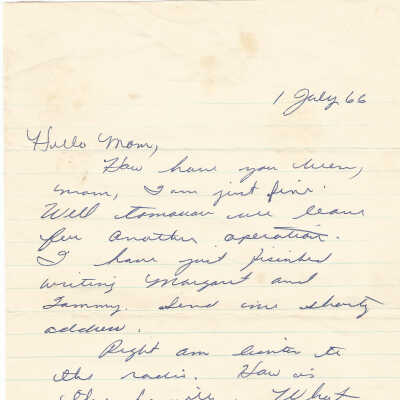 1 July 66
Hello Mom,
How have you been,
mom, I am just fine.
Well tomauow we leave
for another operation.
I have just finished
writing Margaret and
Tammy. Send me shorty
address.
Right am listin to
the radio. How is
the family. What